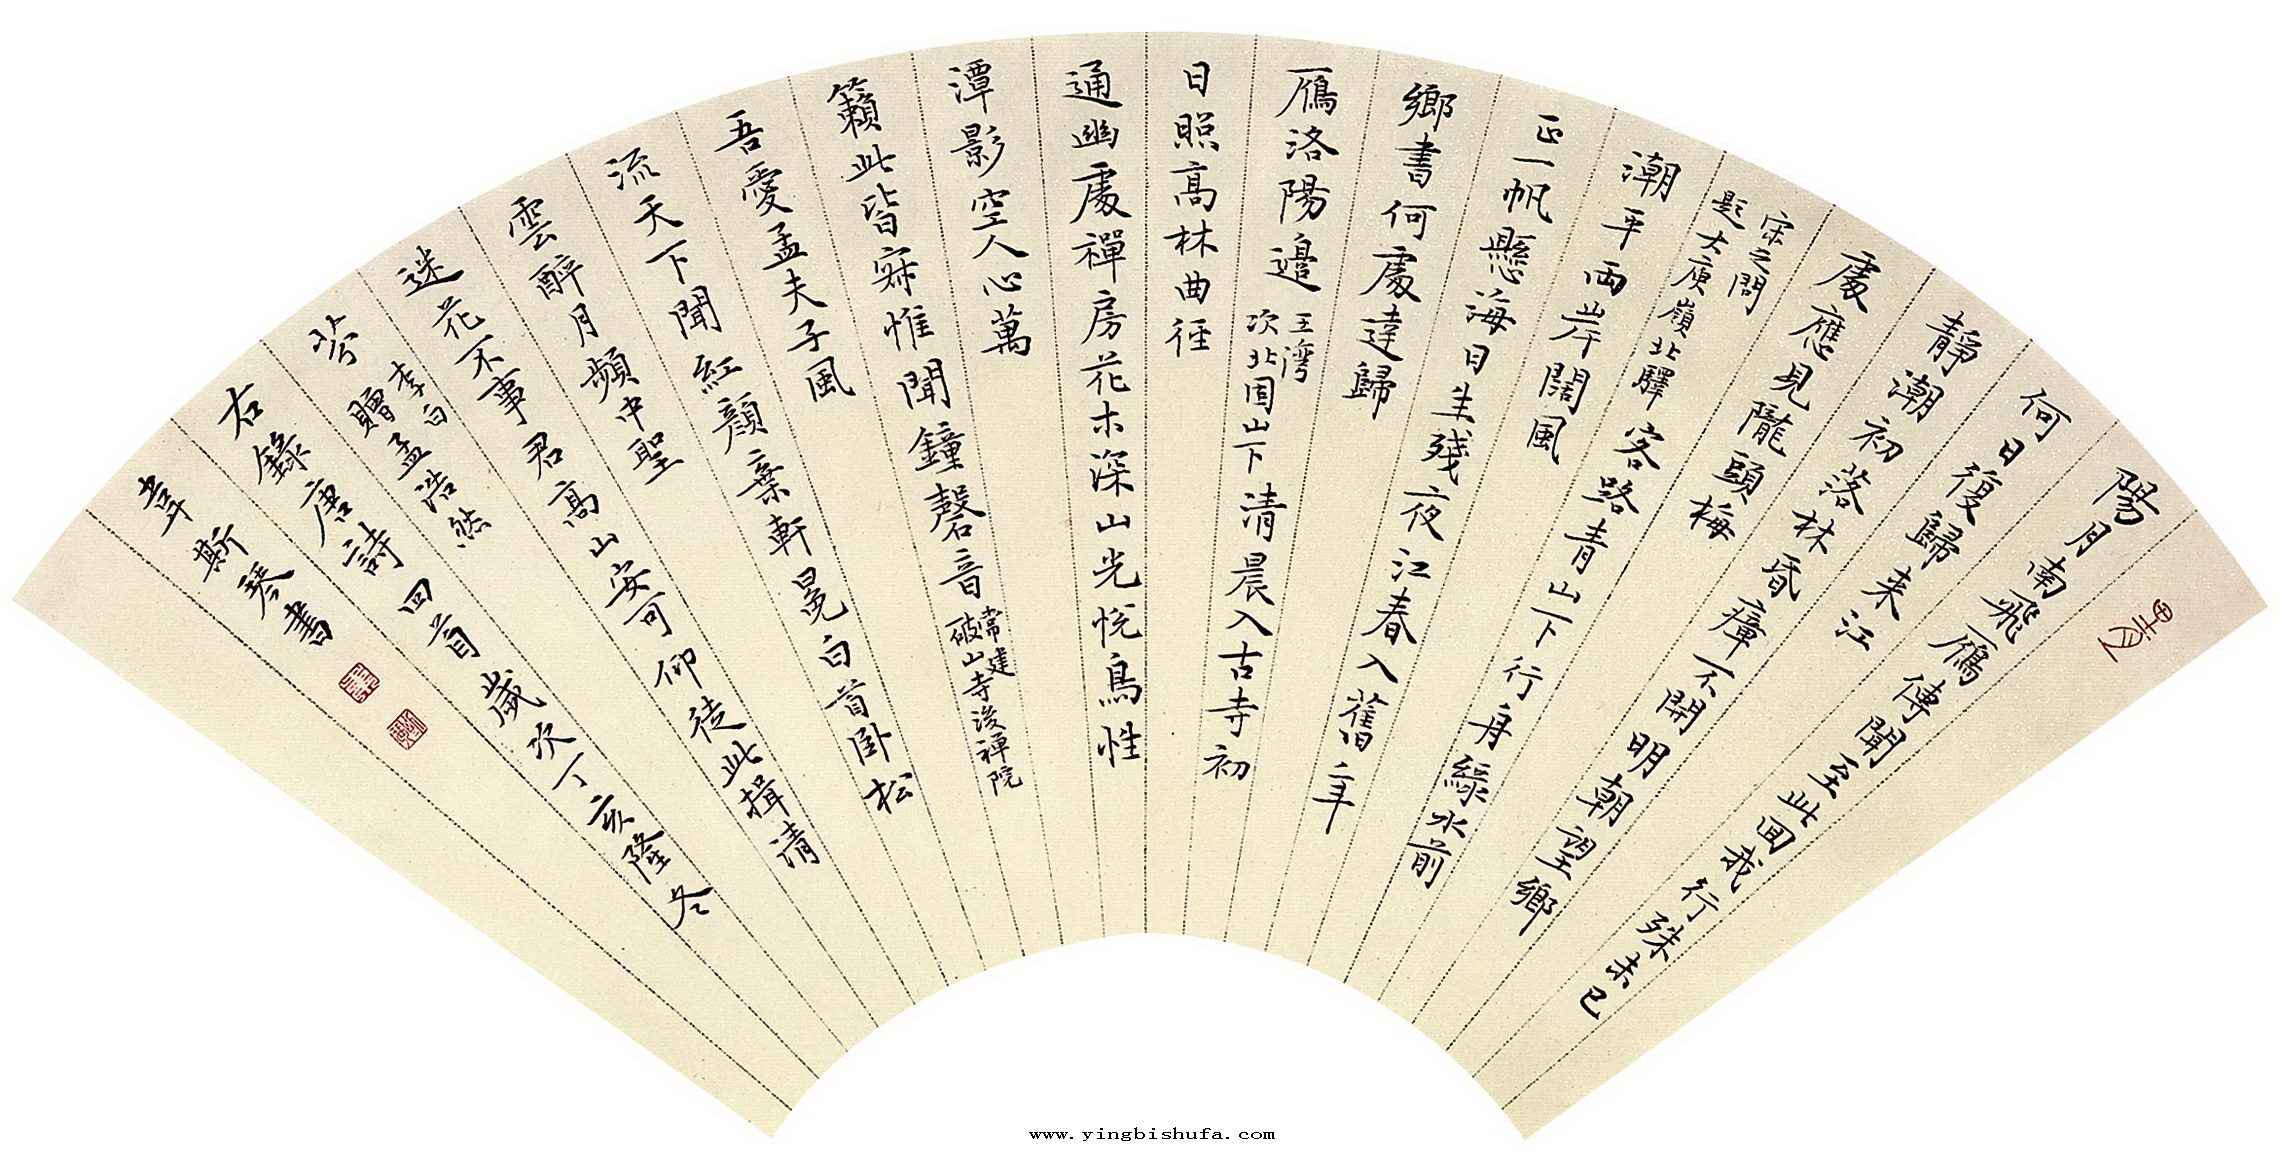 陽月南飛雁傳聞至此回我行殊未已
何日復歸来江
靜潮初落林昏瘴不開明朝望鄉
處應見隴頭梅
宋之問
題大庾嶺北驛
客路青山下行舟綠水前
潮平兩岸闊風
正一帆懸海日生殘夜江春入舊年
鄉書何處達歸
雁洛陽邊
王灣
次北固山下
清晨入古寺初
日照高林曲徑
通幽處禪房花木深山光悅鳥性
潭影空人心萬
籟此皆寂惟聞鐘磬音
常建
破山寺後禪院
吾愛孟夫子風
流天下聞紅顏棄軒冕白首卧松
雲醉月頻中聖
迷花不事君高山安可仰徒此揖清
芬
李白
贈孟浩然
右錄唐詩四首歲次丁亥隆冬
韋斯琴書
www.yingbishufa.com